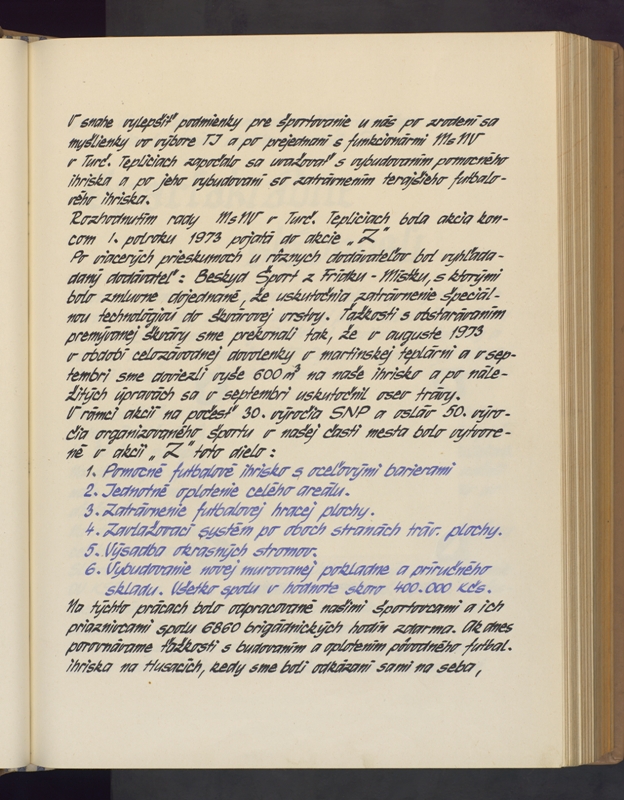 V snahe vylepšiť podmienky pre športovanie u nás po zrodení sa
myšlienky vo výbore TJ a po prejednaní s funkcionármi MsNV
v Turč. Tepliciach započalo sa uvažovať s vybudovaním pomocného
ihriska a po jeho vybudovaní so zatrávnením terajšieho futbalo-
vého ihriska.
Rozhodnutím rady MsNV v Turč. Tepliciach bola akcia kon-
com 1. polroku 1973 pojatá do akcie „Z"
Po viacerých prieskumoch u rôznych dodávateľov bol vyhľada-
daný dodávateľ: Beskyd Šport z Frídku - Místku, s ktorými
bolo zmluvne dojednané, že uskutočnia zatrávnenie špeciál-
nou technológiou do škvárovej vrstvy. Ťažkosti s obstarávaním
premývanej škváry sme prekonali tak, že v auguste 1973
v období celozávodnej dovolenky v martinskej teplární a v sep-
tembri sme doviezli vyše 600 m³ na naše ihrisko a po nále-
žitých úpravách sa v septembri uskutočnil osev trávy.
V rámci akcií na počesť 30. výročia SNP a osláv 50. výro-
čia organizovaného športu v našej časti mesta bolo vytvore-
né v akcii „Z" toto dielo:
1. Pomocné futbalové ihrisko s oceľovými barierami
2. Jednotné oplotenie celého areálu.
3. Zatrávnenie futbalovej hracej plochy.
4. Zavlažovací systém po oboch stranách tráv. plochy.
5. Výsadba okrasných stromov.
6. Vybudovanie novej murovanej pokladne a príručného
skladu. Všetko spolu v hodnote skoro 400.000 Kčs.
Na týchto prácach bolo odpracované našimi športovcami a ich
priaznivcami spolu 6860 brigádnických hodín zdarma. Ak dnes
porovnávame ťažkosti s budovaním a oplotením pôvodného futbal.
ihriska na Hlusacích, kedy sme boli odkázaní sami na seba,